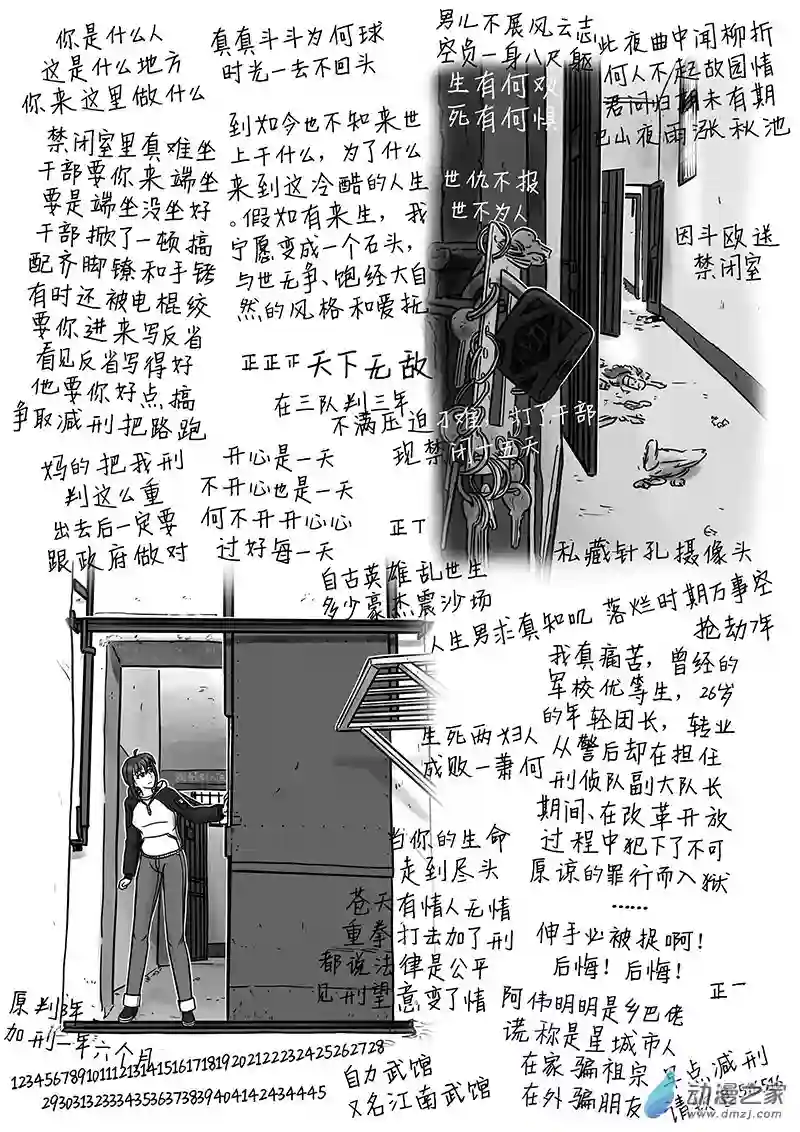 你是什么人
这是什么地方
你来这里做什么
真真斗斗为何球
时光一去不回头
男儿不展风云志
空负一身八尺躯
生有何欢
死有何惧
世仇不报
世不为人
此夜曲中闻柳折
何人不起故园情
君问归期未有期
巴山夜雨涨秋池
因斗欧送
禁闭室
禁闭室里真难坐
干部要你来端坐
要是端坐没坐好
干部掀了一顿搞
配齐脚镣和手铐
有时还被电棍绞
要你进来写反省
看见反省写得好
他要你好点搞
争取减刑把路跑
到如今也不知来世
上干什么，为了什么
来到这冷酷的人生
。假如有来生，我
宁愿变成一个石头，
与世无争、饱经大自
然的风格和爱抚
正正正天下无敌
在三队判三年
不满压迫不难 打了干部
现禁闭十五天
妈的把我刑
判这么重
出去后一定要
跟政府做对
开心是一天
不开心也是一天
何不开开心心
过好每一天
正丅
私藏针孔摄像头
自古英雄乱世生
多少豪杰震沙场
人生男求真知叽
落烂时期万事空
抢劫7年
我真痛苦，曾经的
军校优等生，26岁
的年轻团长，转业
从警后却在担任
刑侦队副大队长
期间、在改革开放
过程中犯下了不可
原谅的罪行而入狱
……
伸手必被捉啊！
后悔！后悔！
生死两妇人
成败一萧何
当你的生命
走到尽头
苍天有情人无情
重拳打去加了刑
都说法律是公平
见刑望意变了情
正一
阿伟明明是乡巴佬
谎称是星城市人
在家骗祖宗
在外骗朋友
早点减刑
原判3年
加刑一年六个月
12345678910111213141516171819202122232425262728
29303132333435363738394041424344445
自力武馆
又名江南武馆
动漫之家
www.dmzj.com